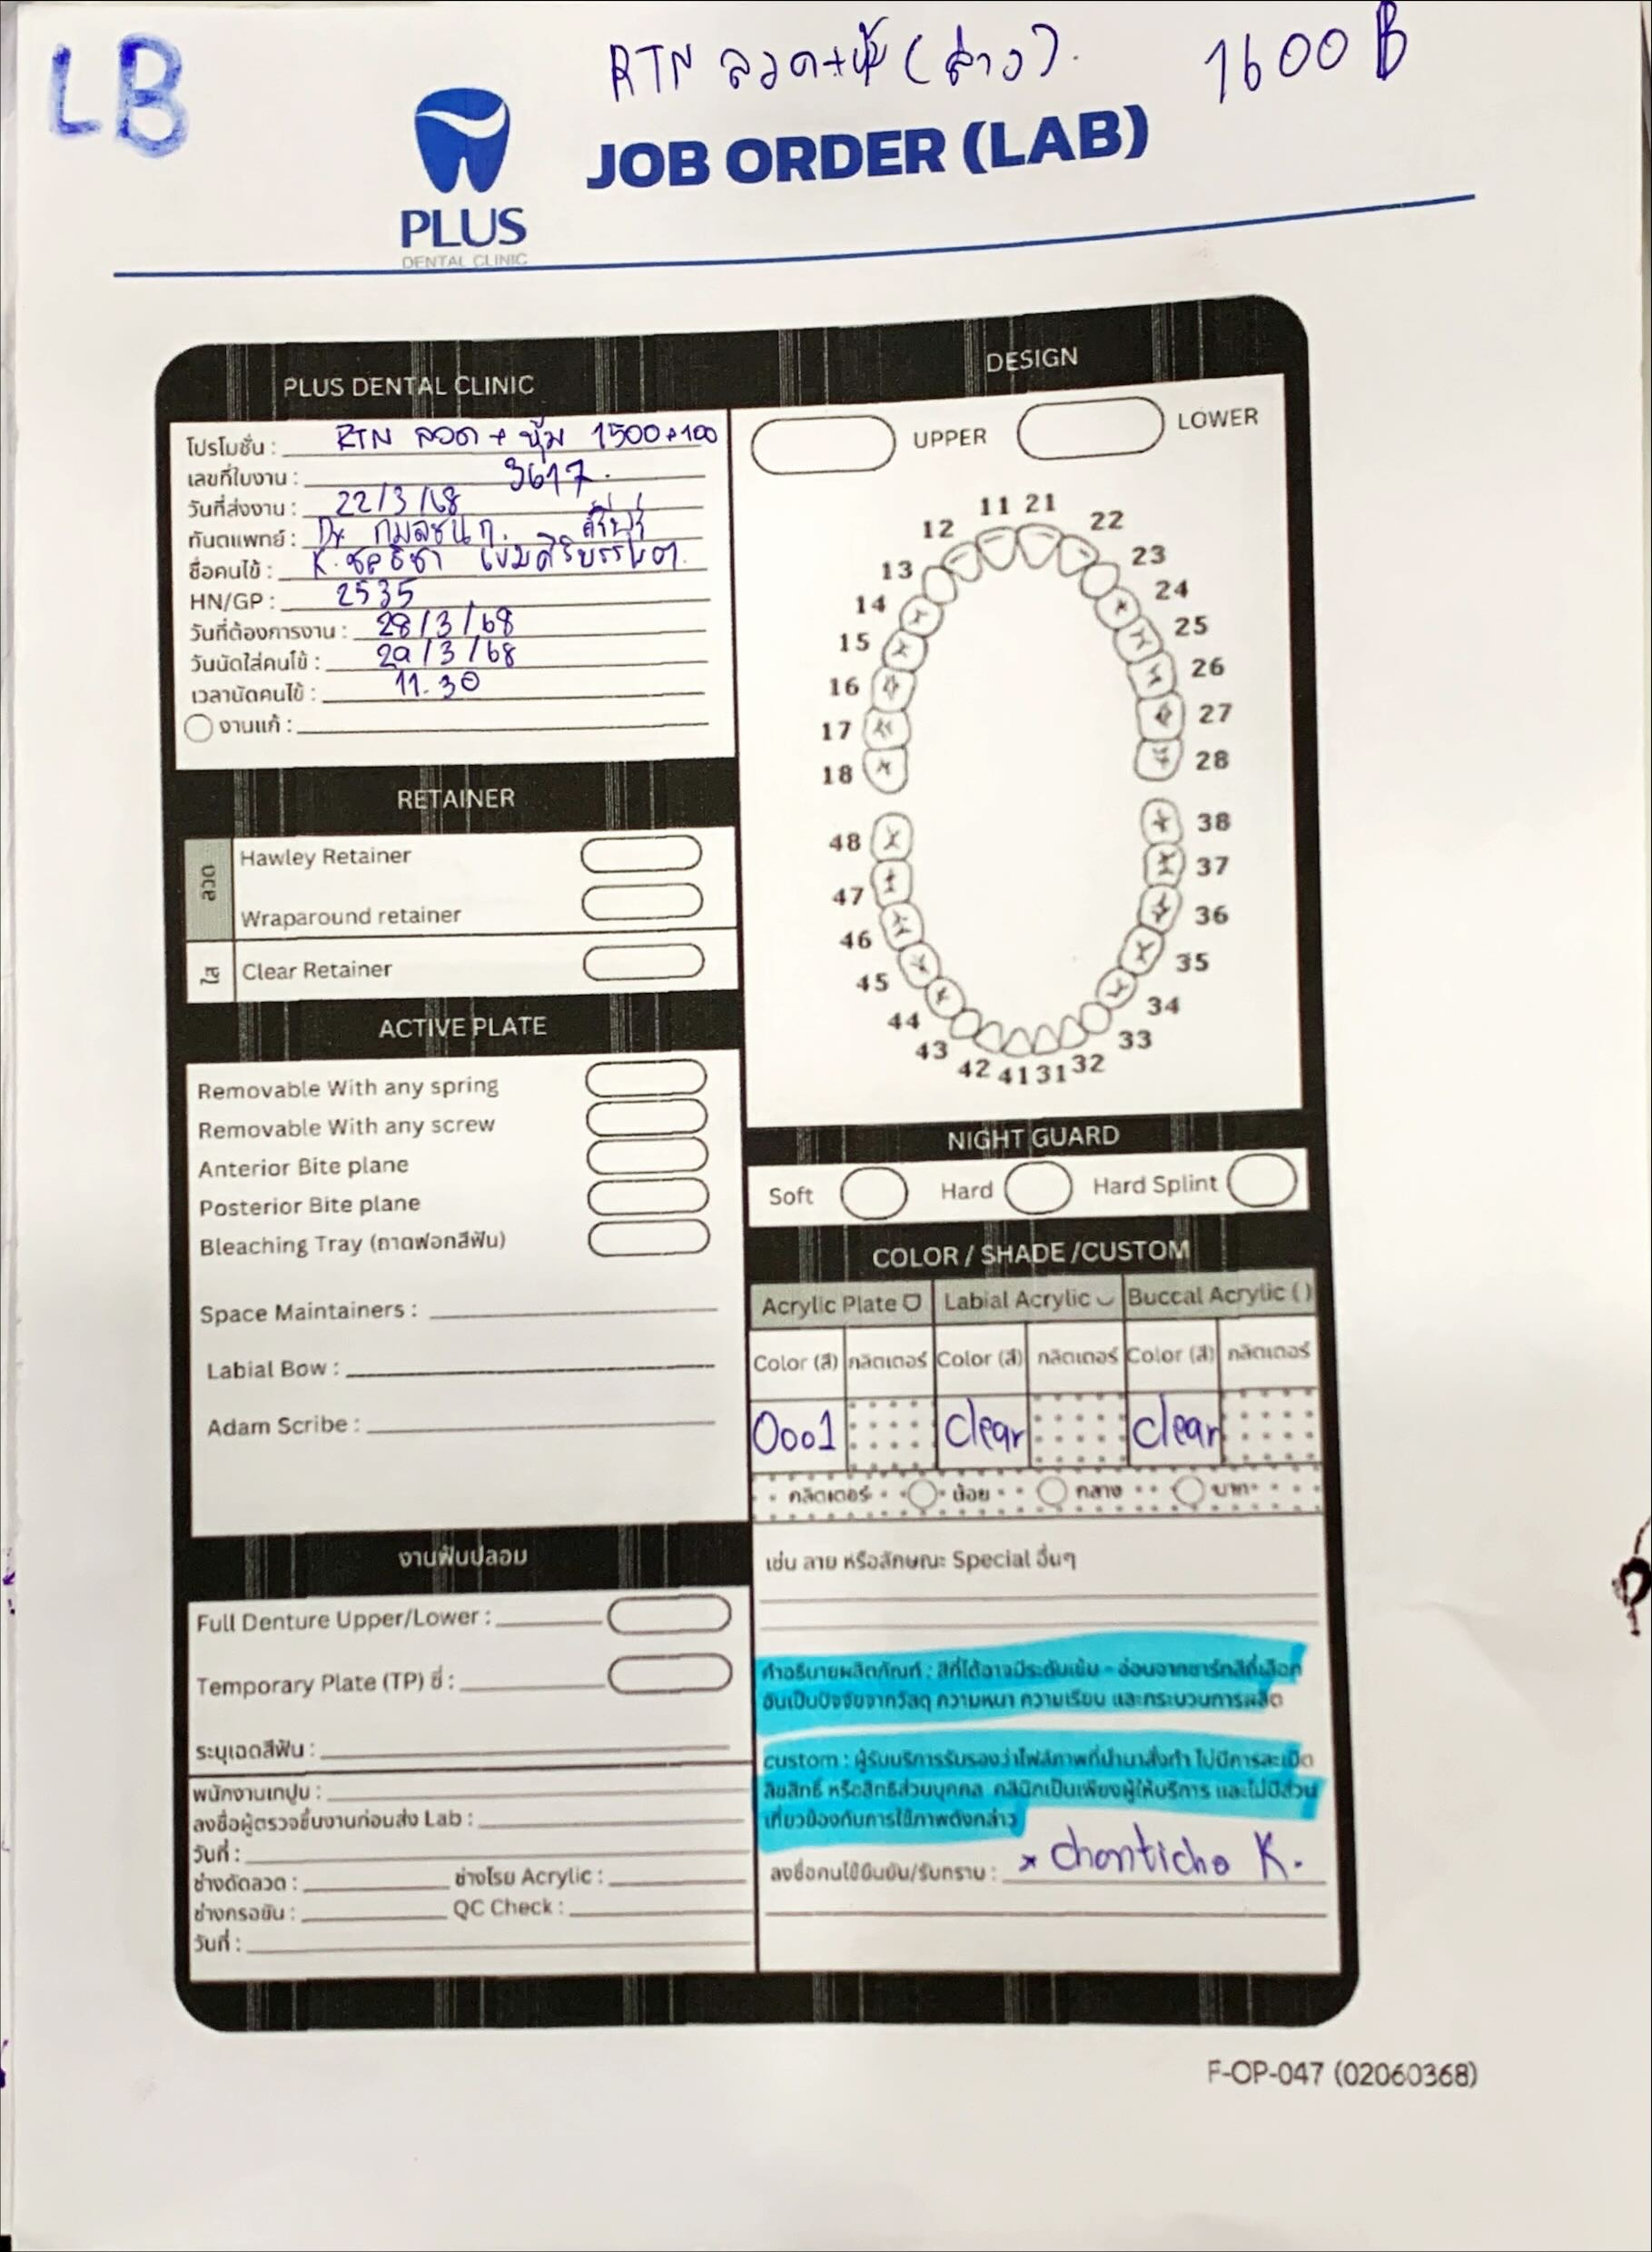 LB
RTN ลวด+หุ้ม (ล่าง). 1600 B
PLUS
DENTAL CLINIC
JOB ORDER (LAB)
PLUS DENTAL CLINIC
โปรโมชั่น : RTN ลวด + หุ้ม 1500+100
เลขที่ใบงาน : 3617.
วันที่ส่งงาน : 22/3/68
ทันตแพทย์ : Dr กมลชนก.
ชื่อคนไข้ : K. ชลธิชา
HN/GP : 2535
วันที่ต้องการงาน : 28/3/68
วันนัดใส่คนไข้ : 29/3/68
เวลานัดคนไข้ : 11.30
งานแก้ :
RETAINER
ลวด
Hawley Retainer
Wraparound retainer
ใส
Clear Retainer
ACTIVE PLATE
Removable With any spring
Removable With any screw
Anterior Bite plane
Posterior Bite plane
Bleaching Tray (ถาดฟอกสีฟัน)
Space Maintainers :
Labial Bow :
Adam Scribe :
งานฟันปลอม
Full Denture Upper/Lower :
Temporary Plate (TP) ซี่ :
ระบุเฉดสีฟัน :
พนักงานเทปูน :
ลงชื่อผู้ตรวจชิ้นงานก่อนส่ง Lab :
วันที่ :
ช่างดัดลวด : ช่างโรย Acrylic :
ช่างกรอขัน : QC Check :
วันที่ :
DESIGN
UPPER LOWER
11 21
12 22
13 23
14 24
15 25
16 26
17 27
18 28
48 38
47 37
46 36
45 35
44 34
43 33
42 41 31 32
NIGHT GUARD
Soft Hard Hard Splint
COLOR / SHADE /CUSTOM
Acrylic Plate Labial Acrylic Buccal Acrylic ( )
Color (สี) กลิตเตอร์ Color (สี) กลิตเตอร์ Color (สี) กลิตเตอร์
0001 clear clear
กลิตเตอร์ น้อย กลาง มาก
เช่น ลาย หรือลักษณะ Special อื่นๆ
คำอธิบายผลิตภัณฑ์ : สีที่ได้อาจมีระดับเข้ม - อ่อนจากชาร์ทสีที่เลือก
อันเป็นปัจจัยจากวัสดุ ความหนา ความเรียบ และกระบวนการผลิต
custom : ผู้รับบริการรับรองว่าไฟล์ภาพที่นำมาสั่งทำ ไม่มีการละเมิด
ลิขสิทธิ์ หรือสิทธิส่วนบุคคล คลินิกเป็นเพียงผู้ให้บริการ และไม่มีส่วน
เกี่ยวข้องกับการใช้ภาพดังกล่าว
ลงชื่อคนไข้ยืนยัน/รับทราบ : x chonticha K.
F-OP-047 (02060368)